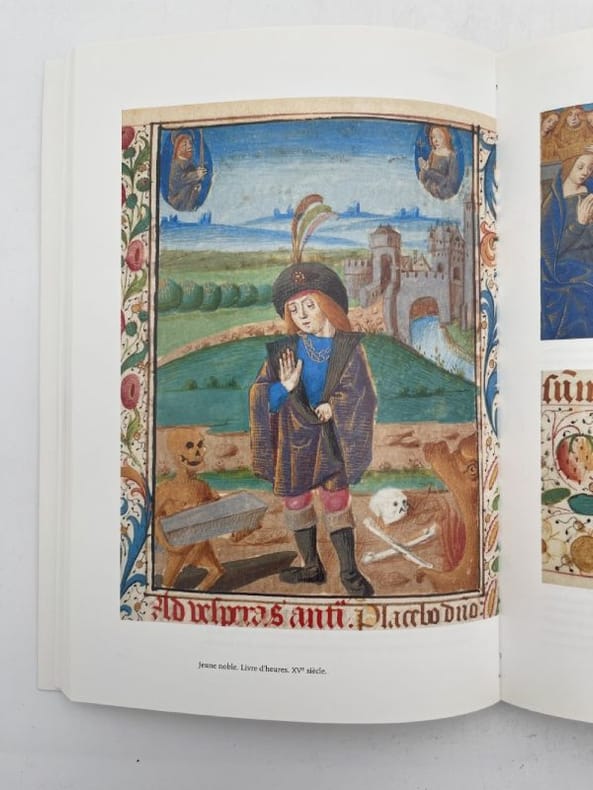 Ad vesperas antī. Placebo dnō.
Jeune noble. Livre d'heures. XVᵉ siècle.